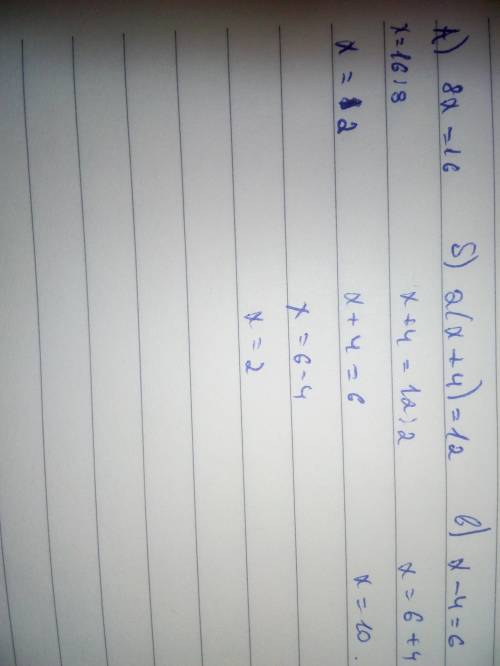 А) 8х = 16
х = 16 : 8
х = 2
б) 2(х + 4) = 12
х + 4 = 12 : 2
х + 4 = 6
х = 6 - 4
х = 2
в) х - 4 = 6
х = 6 + 4
х = 10.